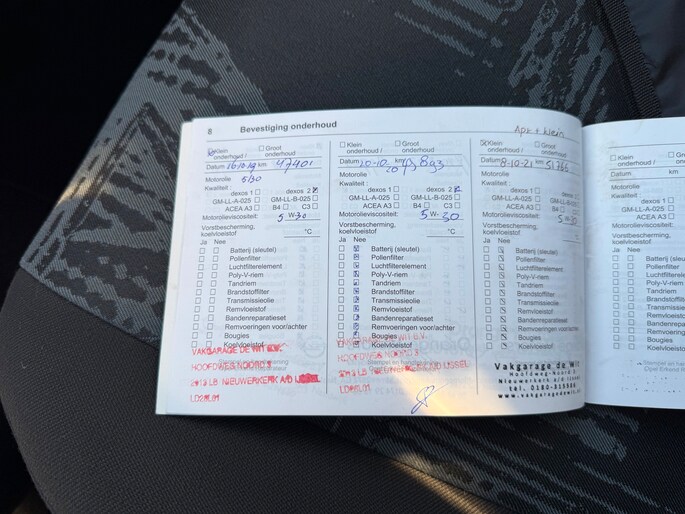 8 Bevestiging onderhoud
Klein onderhoud /
Groot onderhoud
Datum 16-10-19 km 47401
Motorolie 5/30
Kwaliteit :
dexos 1 dexos 2
GM-LL-A-025 GM-LL-B-025
ACEA A3 B4 C3
Motorolieviscositeit: 5 W- 30
Vorstbescherming,
koelvloeistof °C
Ja Nee
Batterij (sleutel)
Pollenfilter
Luchtfilterelement
Poly-V-riem
Tandriem
Brandstoffilter
Transmissieolie
Remvloeistof
Bandenreparatieset
Remvoeringen voor/achter
Bougies
Koelvloeistof
VAKGARAGE DE WIT B.V.
HOOFDWEG NOORD
NIEUWERKERK A/D IJSSEL
Klein onderhoud /
Groot onderhoud
Datum 20-10-20 km
Motorolie
Kwaliteit :
dexos 1 dexos 2
GM-LL-A-025 GM-LL-B-025
ACEA A3 B4 C3
Motorolieviscositeit: 5 W- 30
Vorstbescherming,
koelvloeistof °C
Ja Nee
Batterij (sleutel)
Pollenfilter
Luchtfilterelement
Poly-V-riem
Tandriem
Brandstoffilter
Transmissieolie
Remvloeistof
Bandenreparatieset
Remvoeringen voor/achter
Bougies
Koelvloeistof
VAKGARAGE DE WIT B.V.
HOOFDWEG NOORD
NIEUWERKERK A/D IJSSEL
Apk + klein
Klein onderhoud /
Groot onderhoud
Datum 8-10-21 km 51765
Motorolie
Kwaliteit :
dexos 1 dexos 2
GM-LL-A-025 GM-LL-B-025
ACEA A3 B4 C3
Motorolieviscositeit: 5 W- 30
Vorstbescherming,
koelvloeistof °C
Ja Nee
Batterij (sleutel)
Pollenfilter
Luchtfilterelement
Poly-V-riem
Tandriem
Brandstoffilter
Transmissieolie
Remvloeistof
Bandenreparatieset
Remvoeringen voor/achter
Bougies
Koelvloeistof
Vakgarage de Wit
Nieuwerkerk a/d IJssel
tel. 0180-315566
www.vakgaragedewit.nl
Klein
onderhoud /
Datum
Motorolie
Kwaliteit :
GM-LL-A
ACEA
Motorolievis
Vorstbescherming,
koelvloeistof
Ja Nee